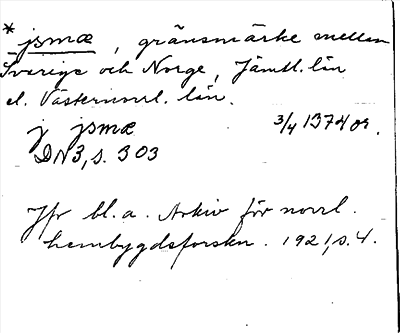 *jsmæ, gränsmärke mellan
Sverige och Norge, Jämtl. län
el. Västernorrl. län.
j jsmæ 3/4 1374 or.
DN 3, s. 303
Jfr bl. a. Arkiv för norrl.
hembygdsforskn. 1921, s. 4.